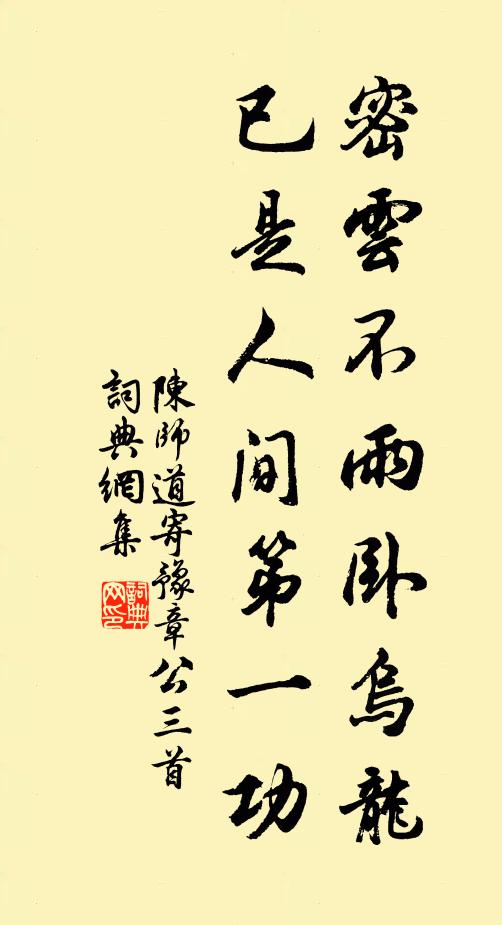 密雲不雨卧烏龍
已是人間第一功
陳師道寄豫章公三首
詞典網集
詞典
网印